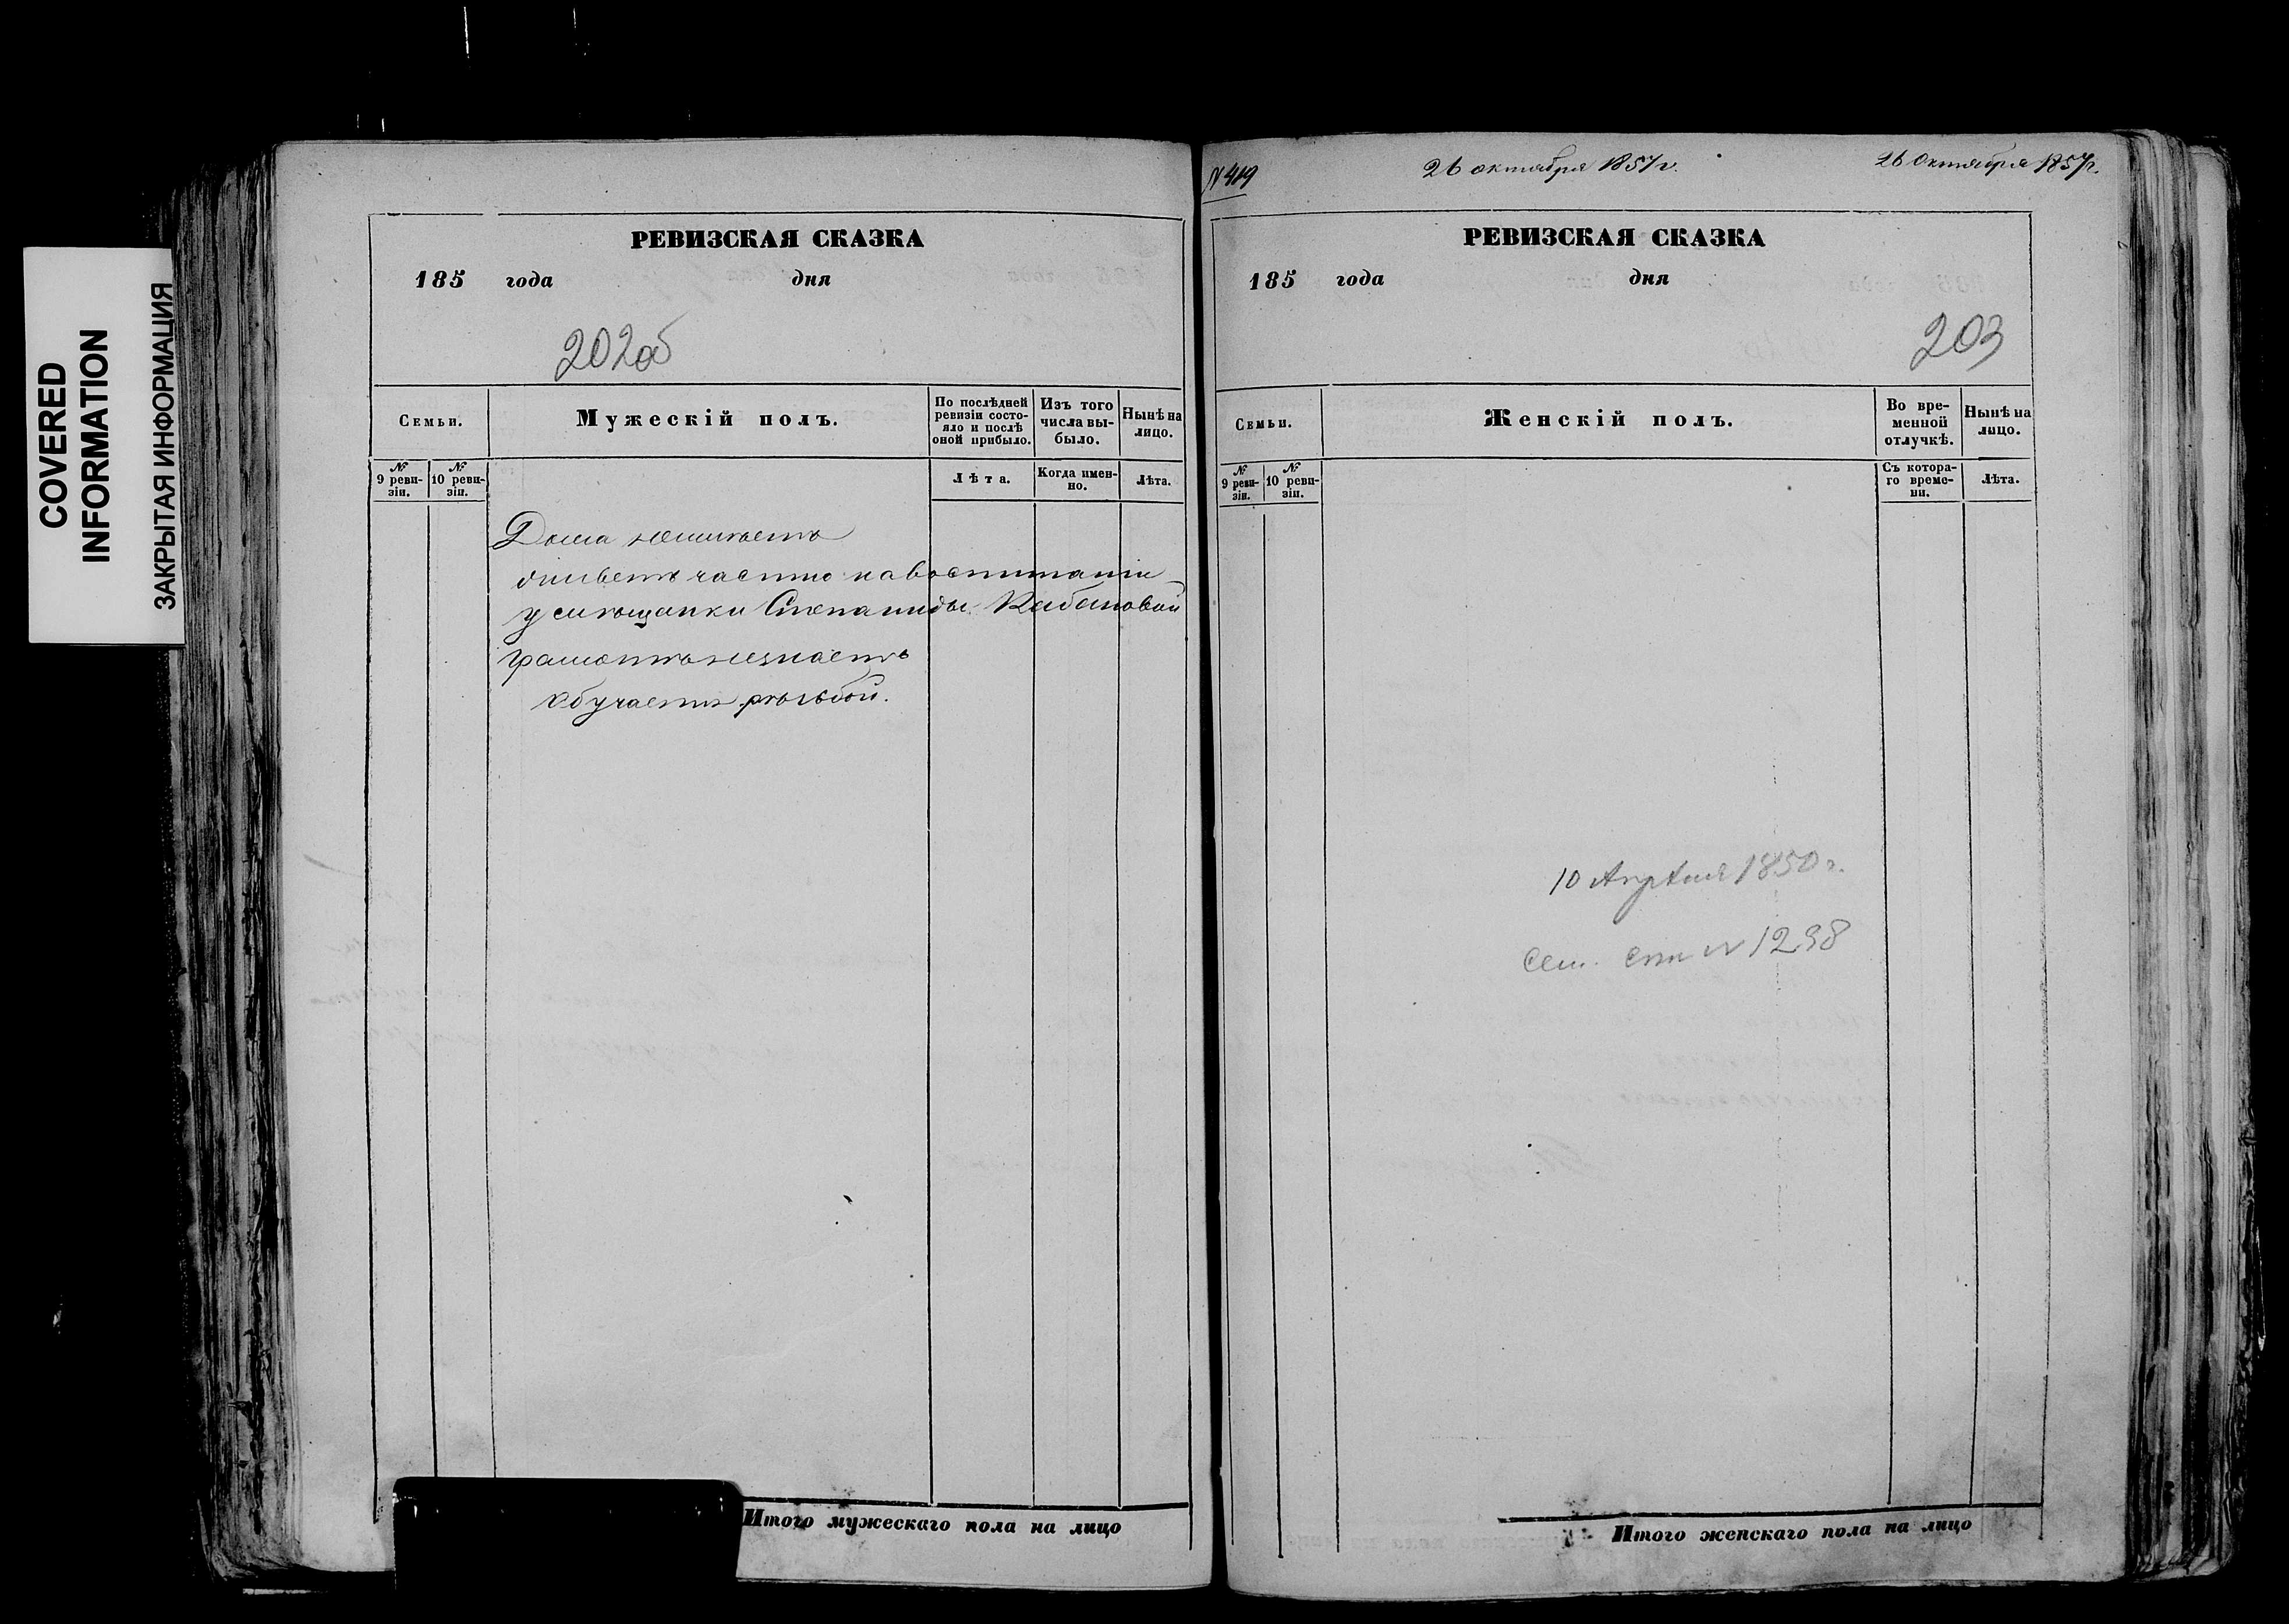 COVERED
INFORMATION
ЗАКРЫТАЯ ИНФОРМАЦИЯ
РЕВИЗСКАЯ СКАЗКА
185 года дня
202об
Семьи.
Мужескій полъ.
По послѣдней ревизіи состояло и послѣ оной прибыло.
Изъ того числа выбыло.
Нынѣ на лицо.
№ 9 ревизіи.
№ 10 ревизіи.
Лѣта.
Когда именно.
Лѣта.
Дома неимѣетъ
живетъ частію на воспитаніи
у мѣщанки Степаниды Кабановой
грамотѣ незнаетъ
Обучается
Итого мужескаго пола на лицо
N 419
26 октября 1857 г.
26 Октября 1857 г.
РЕВИЗСКАЯ СКАЗКА
185 года дня
203
Семьи.
Женскій полъ.
Во временной отлучкѣ.
Нынѣ на лицо.
№ 9 ревизіи.
№ 10 ревизіи.
Съ котораго времени.
Лѣта.
10 Апрѣля 1850 г.
Сем. сп N 1298
Итого женскаго пола на лицо